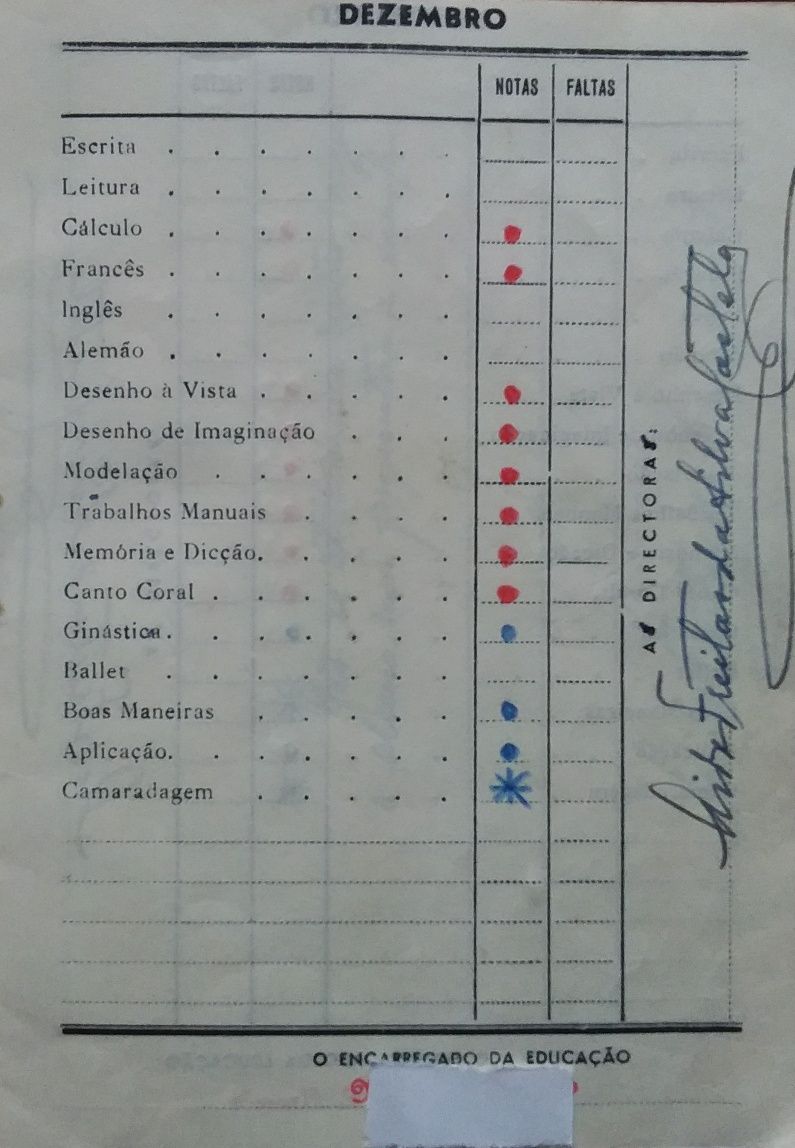 DEZEMBRO
NOTAS FALTAS
Escrita
Leitura
Cálculo
Francês
Inglês
Alemão
Desenho à Vista
Desenho de Imaginação
Modelação
Trabalhos Manuais
Memória e Dicção.
Canto Coral
Ginástica.
Ballet
Boas Maneiras
Aplicação.
Camaradagem
A DIRECTORA:
Freitas da Silva
O ENCARREGADO DA EDUCAÇÃO